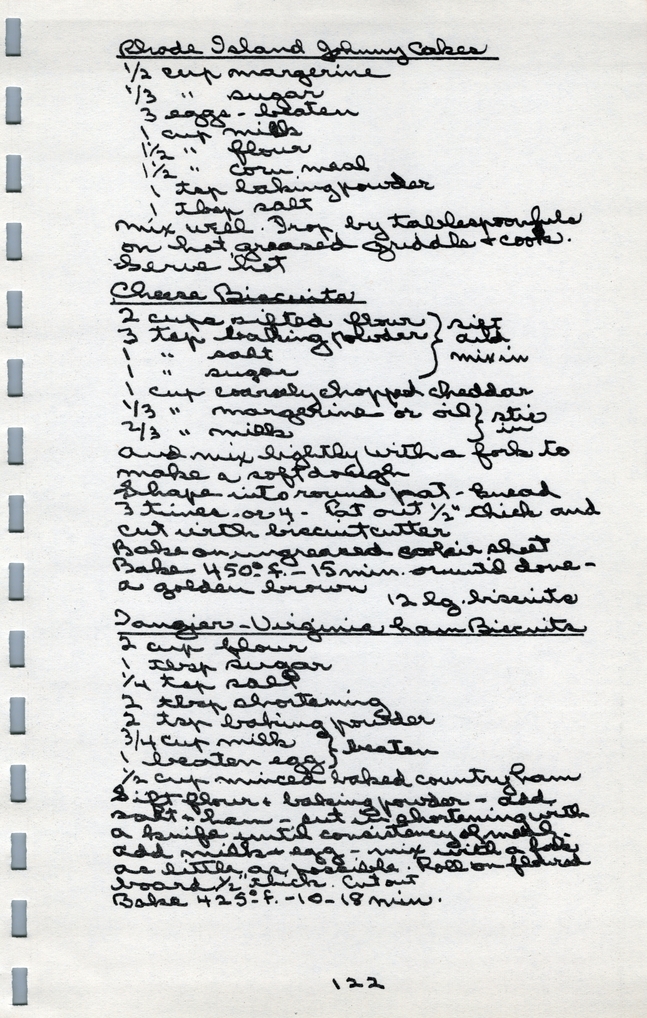 Rhode Island Johnny Cakes
1/2 cup margerine
1/3 " sugar
3 eggs - beaten
1 cup milk
1 1/2 " flour
1 1/2 " corn meal
1 tsp baking powder
1 tbsp salt
mix well. Drop by tablespoonfuls
on hot greased griddle + cook.
Serve hot
Cheese Biscuits
2 cups sifted flour } sift
3 tsp baking powder and
1 " salt mix in
1 " sugar
1 cup coarsely chopped cheddar
1/3 " margerine or oil } stir
2/3 " milk in
and mix lightly with a fork to
make a soft dough
Shape into round pat - knead
3 times or 4 - Pat out 1/2" thick and
cut with biscuit cutter
Bake on ungreased cookie sheet
Bake 450° f. - 15 min. or until done -
a golden brown
12 lg. biscuits
Tangier - Virginia ham Biscuits
2 cup flour
1 tbsp sugar
1/4 tsp salt
2 tbsp shortening
2 tsp baking powder
3/4 cup milk } beaten
1 beaten egg
1/2 cup minced baked country ham
Sift flour + baking powder - add
salt + ham - cut in shortening with
a knife until consistency of meal -
add milk + egg - mix with a fork
as little as possible. Roll on floured
board 1/2 thick. Cut out
Bake 425° f. - 10 - 18 min.
122